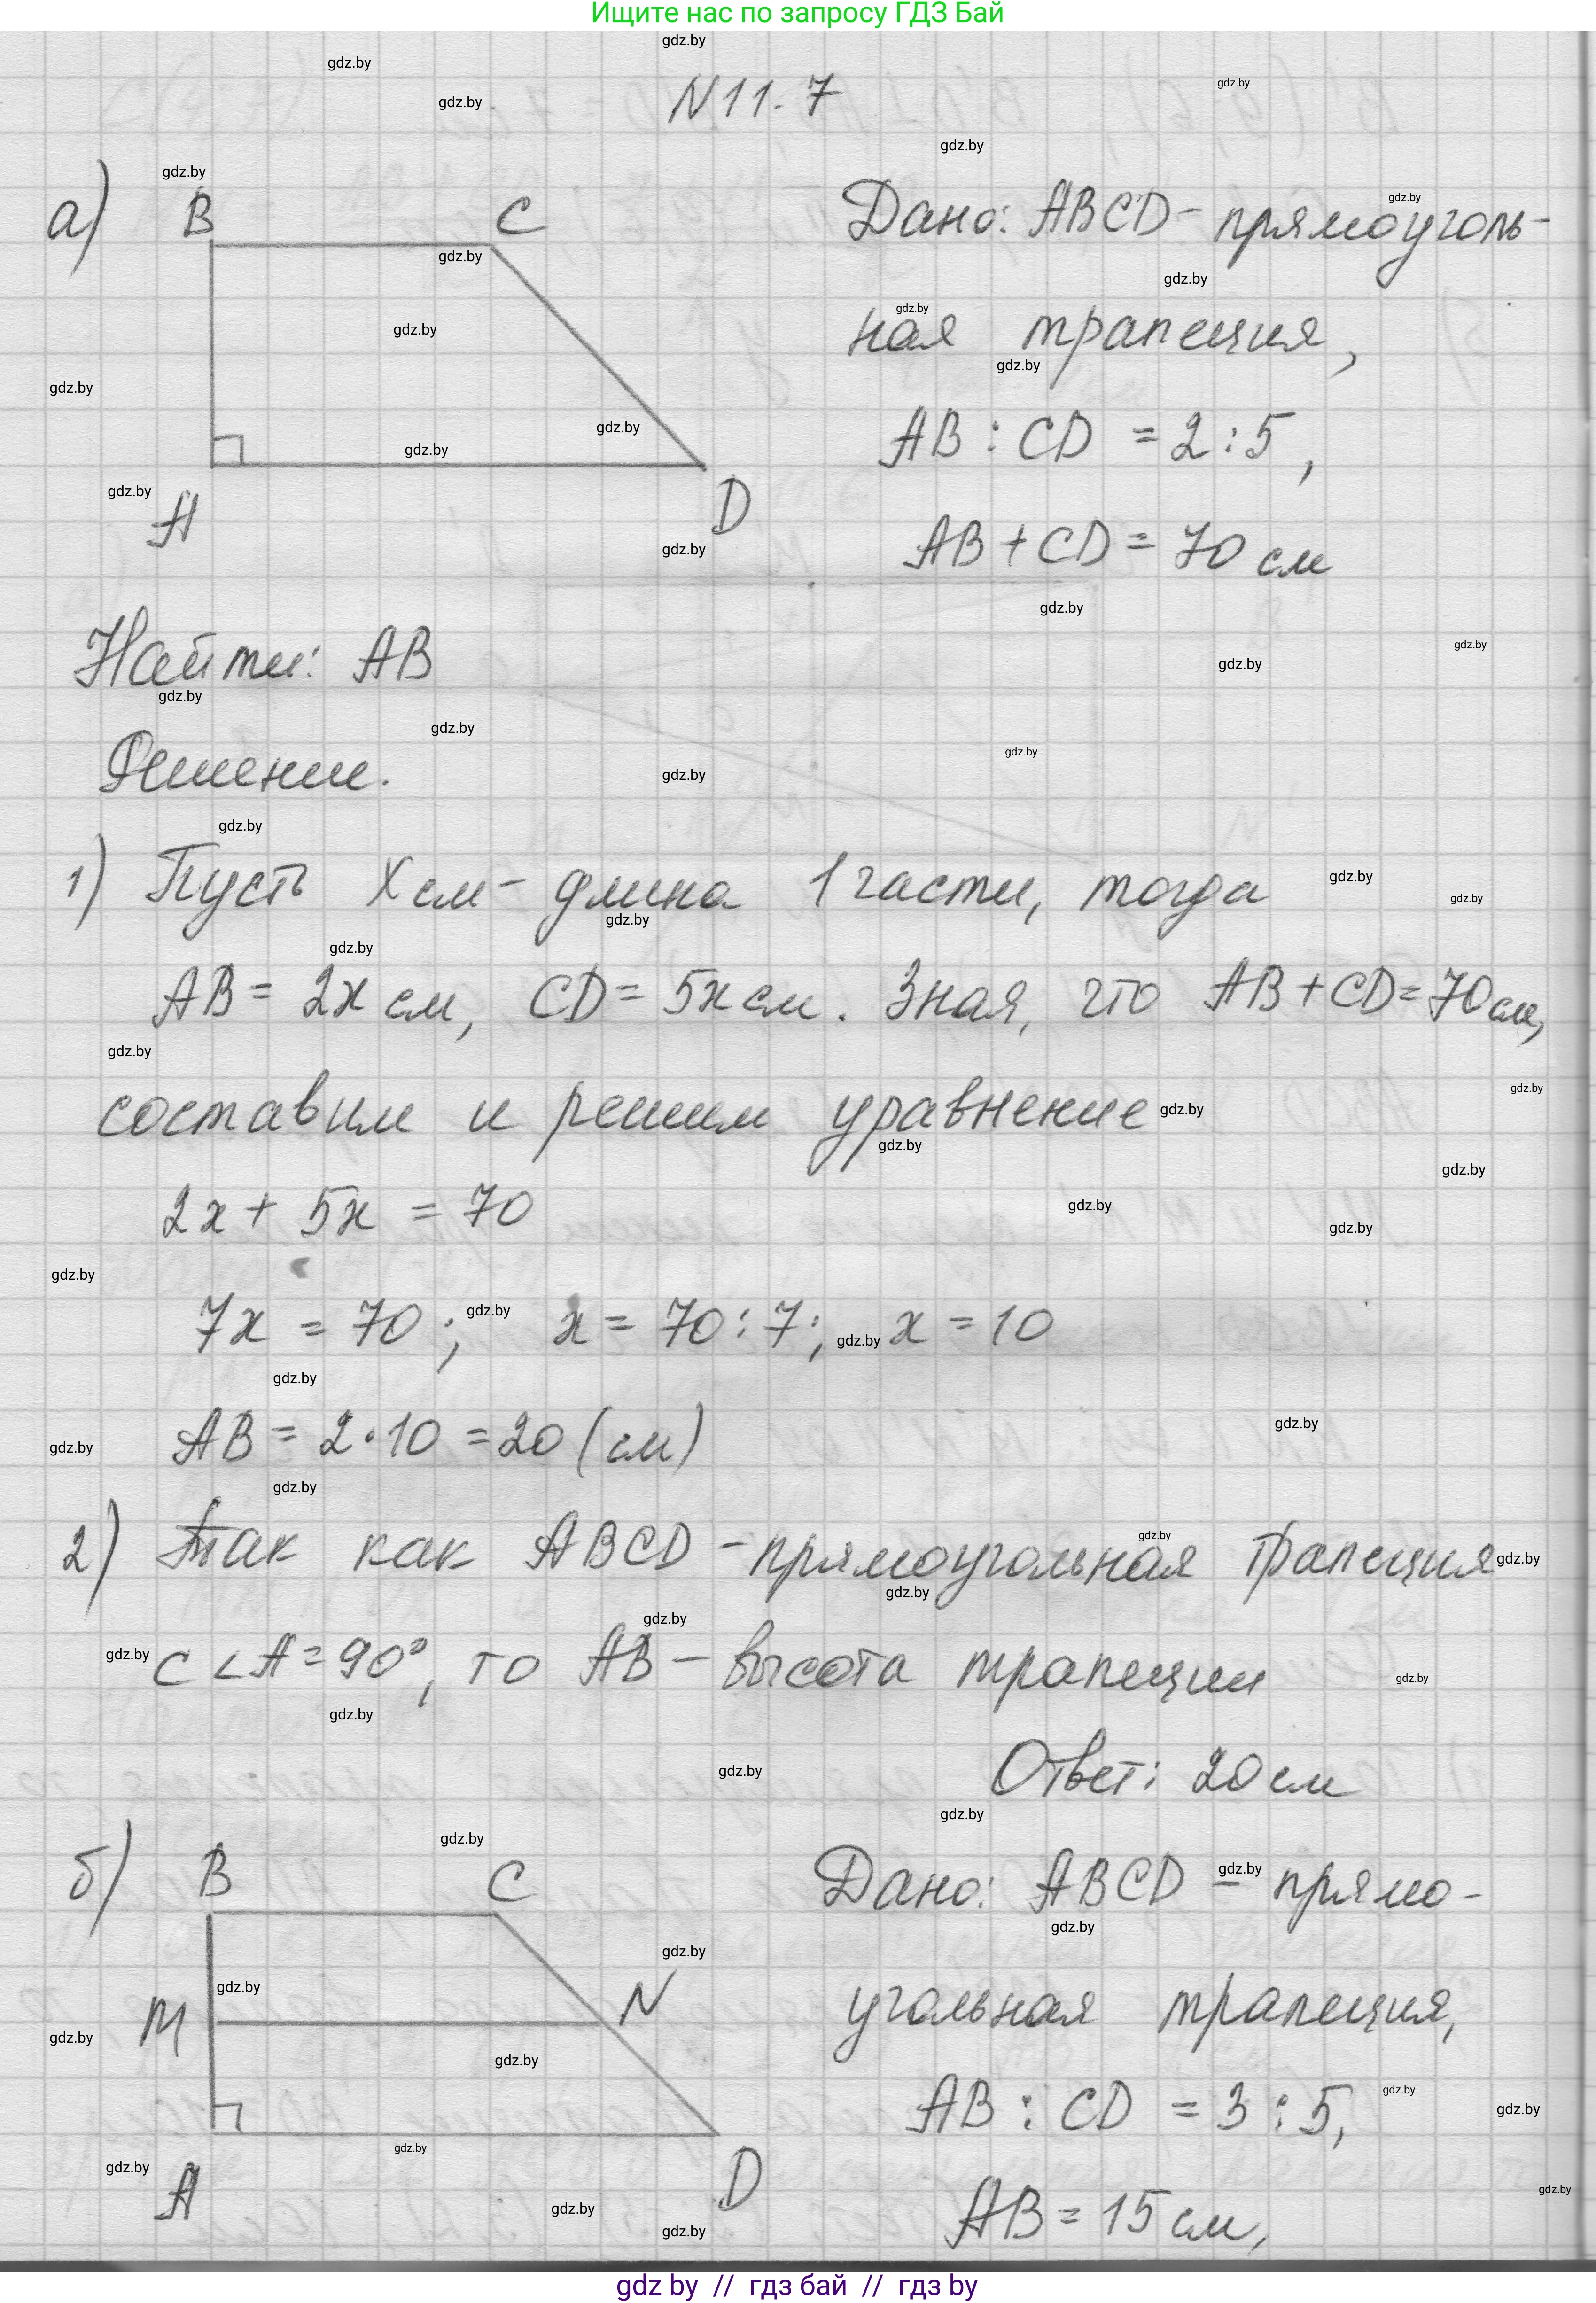 Ищите нас по запросу ГДЗ Бай
N 11.7
а) B C
A D
Дано: ABCD - прямоуголь-
ная трапеция,
AB : CD = 2 : 5,
AB + CD = 70 см
Найти: AB
Решение.
1) Пусть x см - длина 1 части, тогда
AB = 2x см, CD = 5x см. Зная, что AB + CD = 70 см,
составим и решим уравнение
2x + 5x = 70
7x = 70; x = 70 : 7; x = 10
AB = 2 · 10 = 20 (см)
2) Так как ABCD - прямоугольная трапеция
с ∠A = 90°, то AB - высота трапеции
Ответ: 20 см
б) B C
M N
A D
Дано: ABCD - прямо-
угольная трапеция,
AB : CD = 3 : 5,
AB = 15 см,
gdz by // гдз бай // гдз by